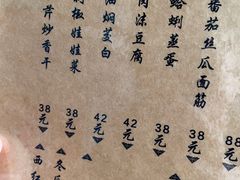 88元
番茄丝瓜面筋
38元
蛤蜊蒸蛋
38元
沫豆腐
42元
油焖茭白
42元
娃娃菜
38元
芹炒香干
38元
冬
西红